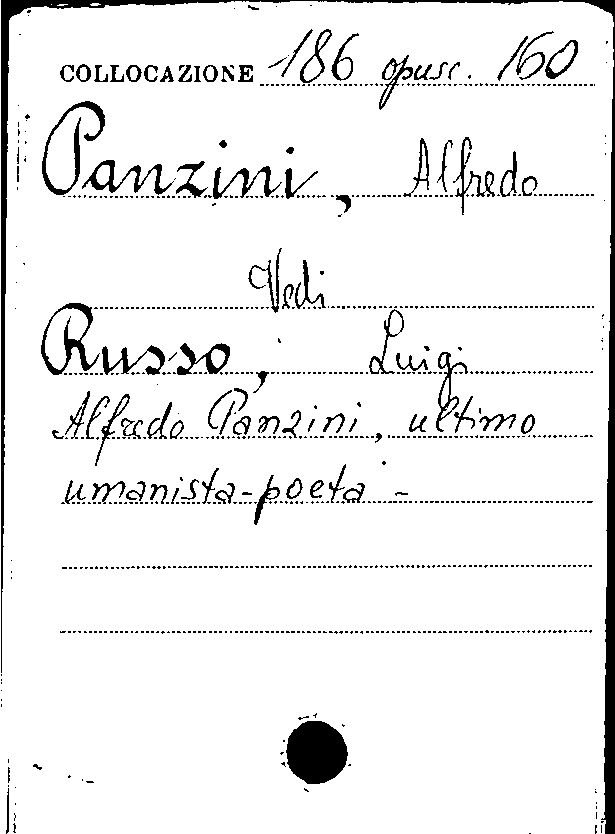 COLLOCAZIONE 186 opusc. 160
Panzini, Alfredo
Vedi
Russo, Luigi
Alfredo Panzini, ultimo
umanista-poeta -